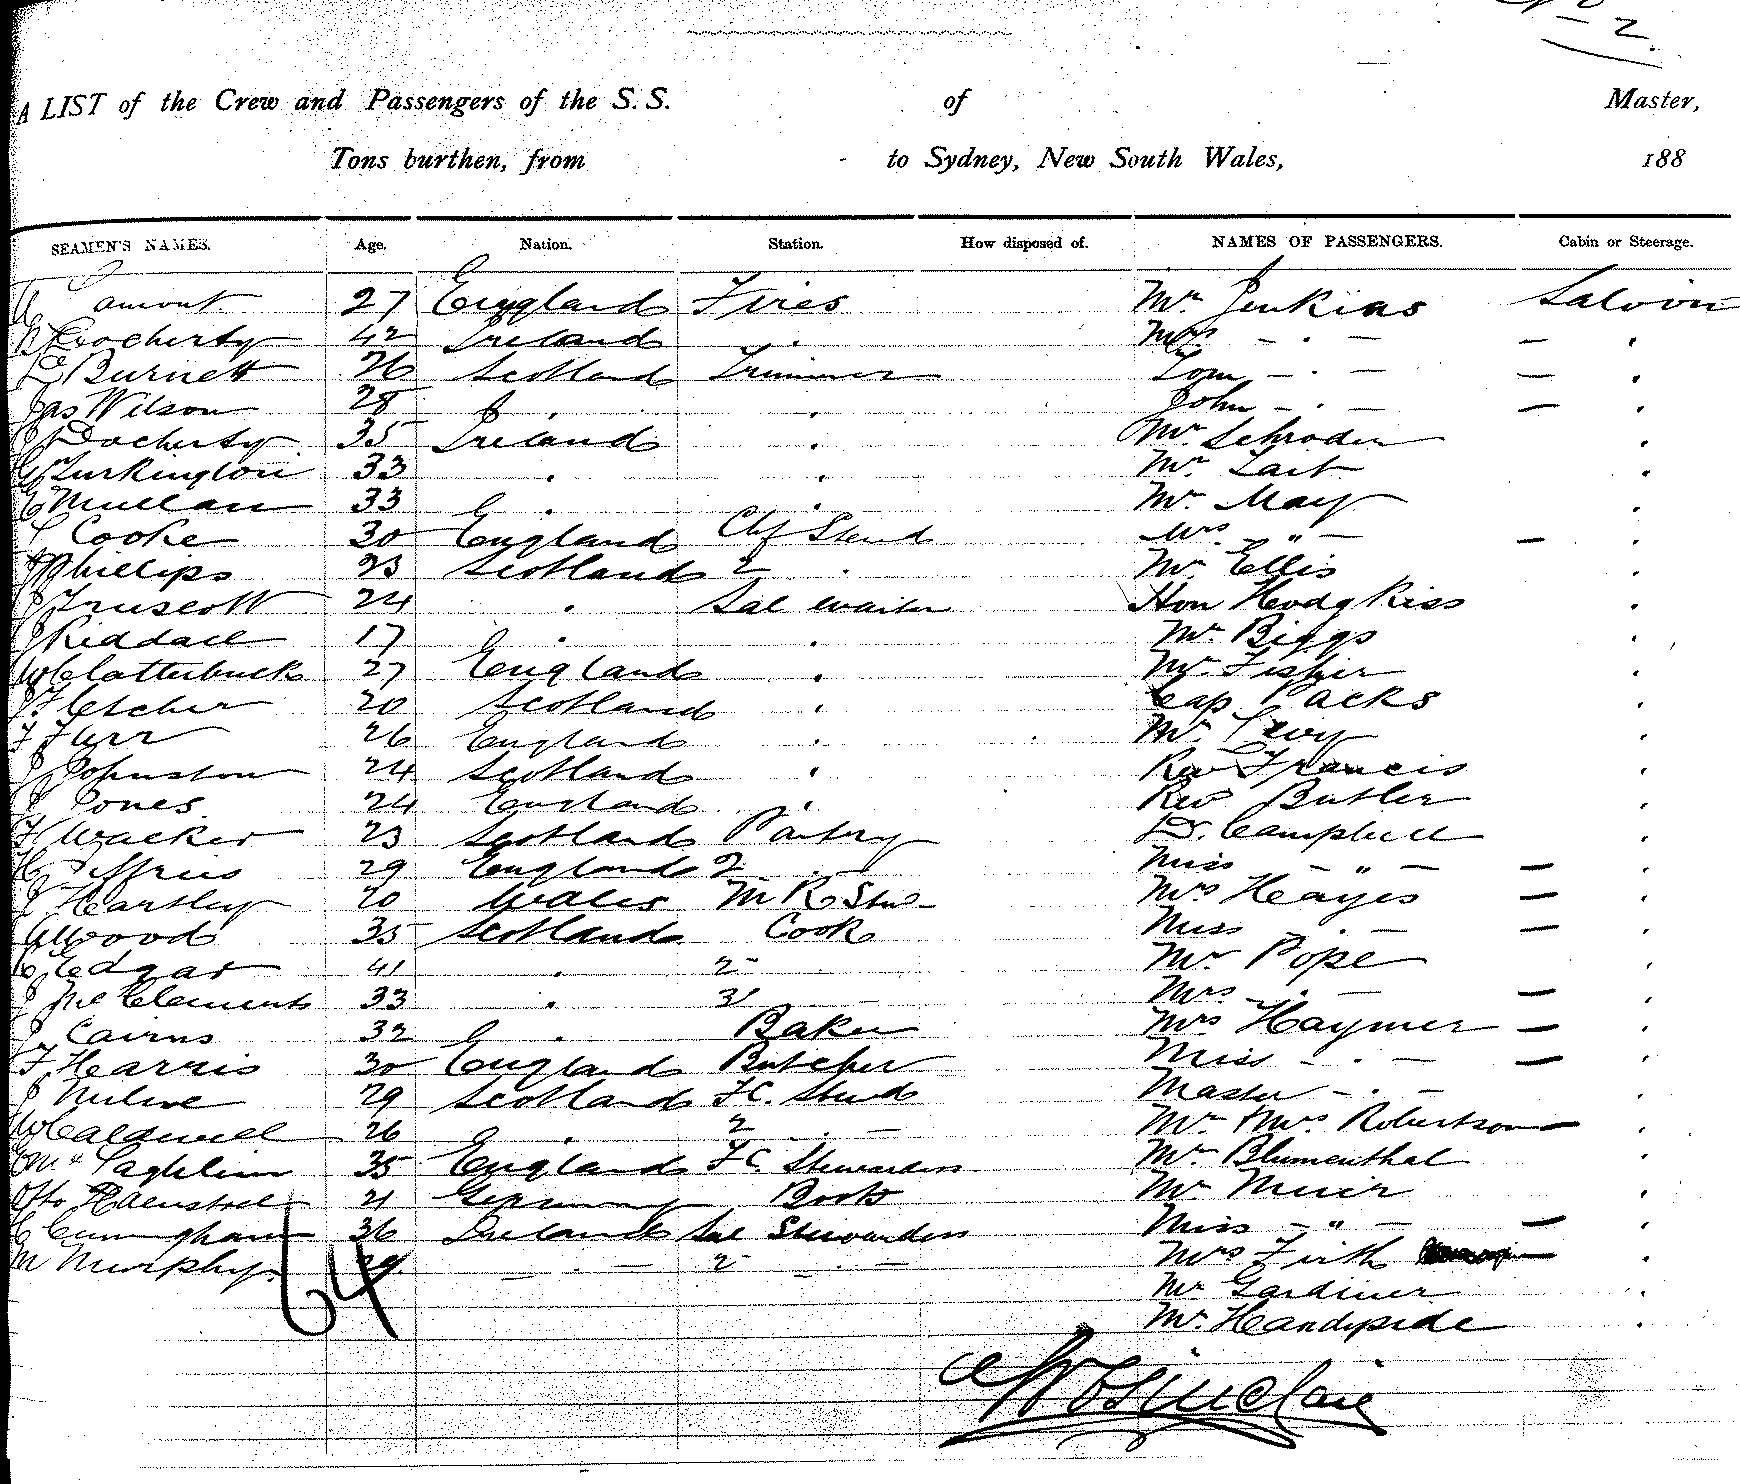 No 2.
A LIST of the Crew and Passengers of the S. S. of Master,
Tons burthen, from to Sydney, New South Wales, 188
SEAMEN'S NAMES. Age. Nation. Station. How disposed of. NAMES OF PASSENGERS. Cabin or Steerage.
27 England Fires Mr. Jenkins Saloon
Docherty 42 Ireland " Mrs - " - - "
Burnett 26 Scotland Trimmer Tom - " - - "
Jas Wilson 28 " " John - " - - "
Docherty 35 Ireland " Mr Schroder "
Turkington 33 " " Mr "
Mullan 33 " " Mr. May "
Cooke 30 England Chf Stewd Mrs " - - "
Phillips 23 Scotland 2 " Mr. Ellis "
J Truscott 24 " Sal waiter Hon Hodgkiss "
J Riddall 17 " " Mr. Biggs "
W Clatterbuck 27 England " Mr. Fisher "
J. Fletcher 20 Scotland " Cap Packs "
F Furr 26 England " Mr. Levy "
J Johnston 24 Scotland " Rev Francis "
J Jones 24 England " Rev Butler "
Walker 23 Scotland Pantry Dr. Campbell "
Jeffries 29 England 2 " Miss - " - - "
J Hartley 20 Wales M R Stwd - Mrs Hayes - "
Wood 35 Scotland Cook Miss " - - "
Edgar 41 " 2 Mr. Pope "
J McClements 33 " 3 " - Mrs - " - - "
J Cairns 32 " Baker Mrs Haymer - "
F Harris 30 England Butcher Miss - " - - "
J Milne 29 Scotland F.C. Stewd Master - " - "
W Caldwell 26 " 2 " - Mr. & Mrs. Robertson -
35 England F C. Stewardess Mr. Blumenthal
Otto 21 Germany Boots Mr Muir "
C Cunningham 36 Ireland Sal Stewardess Miss - " - - "
M Murphy 29 - " - 2 - " - Mrs Firth - "
64 Mr Gardiner "
Mr. Handyside "
Sinclair